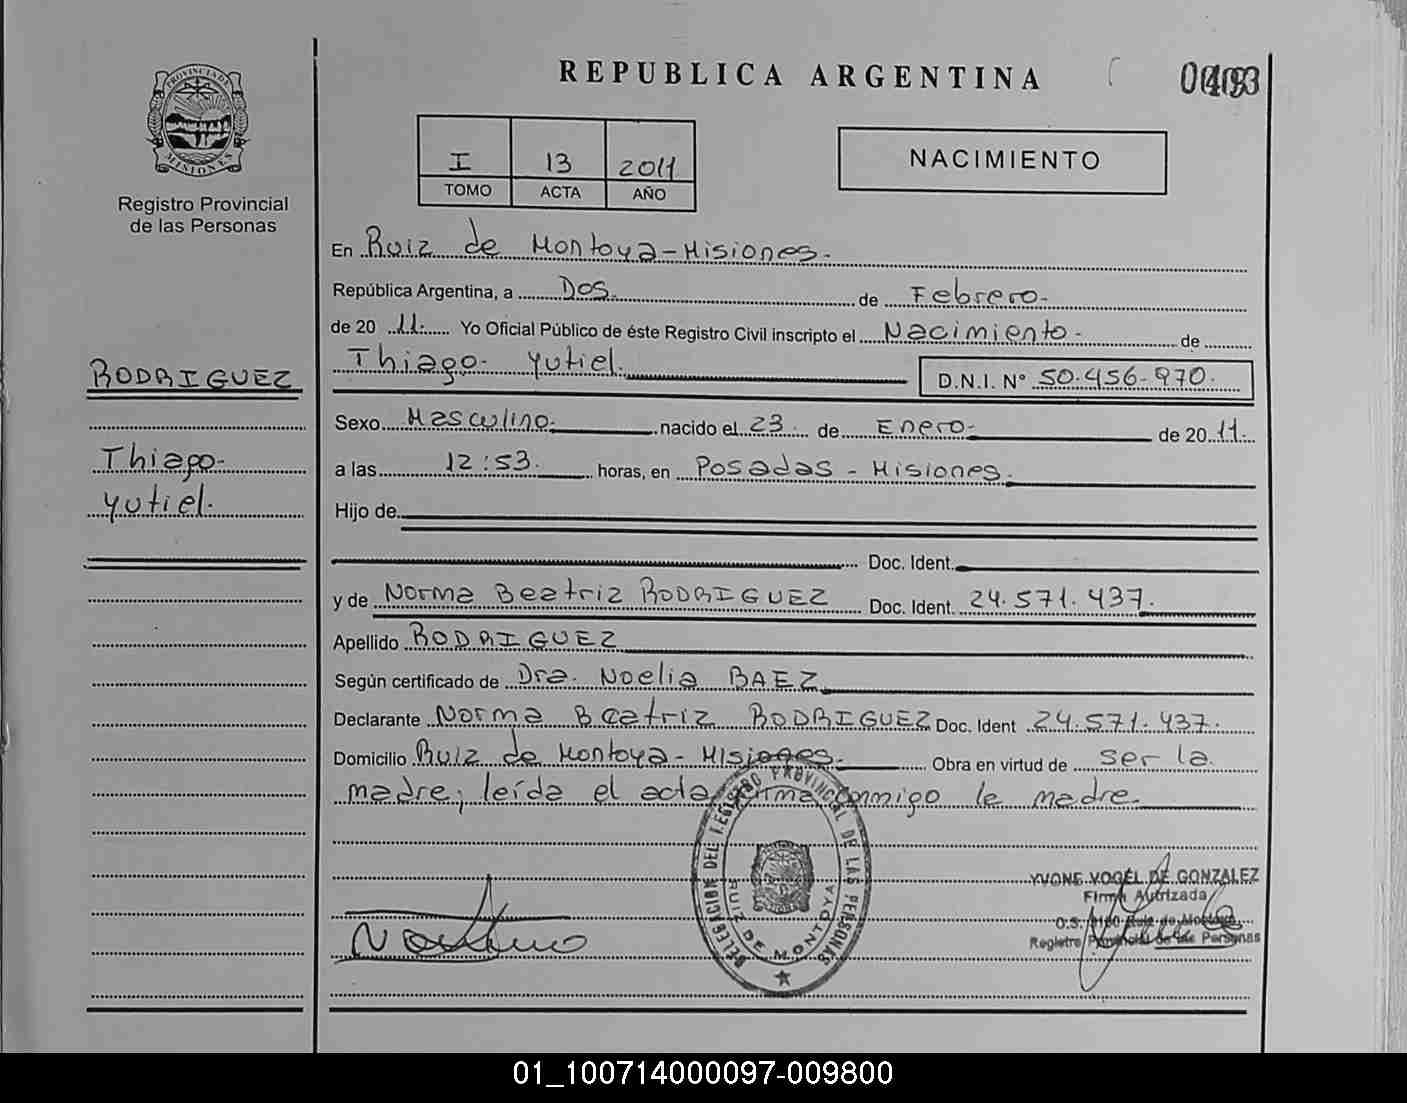 REPUBLICA ARGENTINA
PROVINCIA DE MISIONES
Registro Provincial
de las Personas
I 13 2011
TOMO ACTA AÑO
NACIMIENTO
En Ruiz de Montoya - Misiones.
República Argentina, a Dos. de Febrero.
de 20 11. Yo Oficial Público de éste Registro Civil inscripto el Nacimiento - de
Thiago. Yutiel. D.N.I. N° 50.456.970.
RODRIGUEZ
Sexo Masculino. nacido el 23 de Enero - de 20 11.
Thiago -
Yutiel.
a las 12:53. horas, en Posadas - Misiones.
Hijo de
Doc. Ident.
y de Norma Beatriz RODRIGUEZ Doc. Ident. 24.571.437.
Apellido RODRIGUEZ
Según certificado de Dra. Noelia BAEZ
Declarante Norma Beatriz RODRIGUEZ Doc. Ident 24.571.437.
Domicilio Ruiz de Montoya - Misiones. Obra en virtud de ser la
madre; leída el acta firma conmigo la madre.
DELEGACION DEL REGISTRO PROVINCIAL DE LAS PERSONAS
RUIZ DE MONTOYA
YVONE VOGEL DE GONZALEZ
Firma Autrizada
O.S. Ruiz de Montoya
Registro Provincial de las Personas
01_100714000097-009800